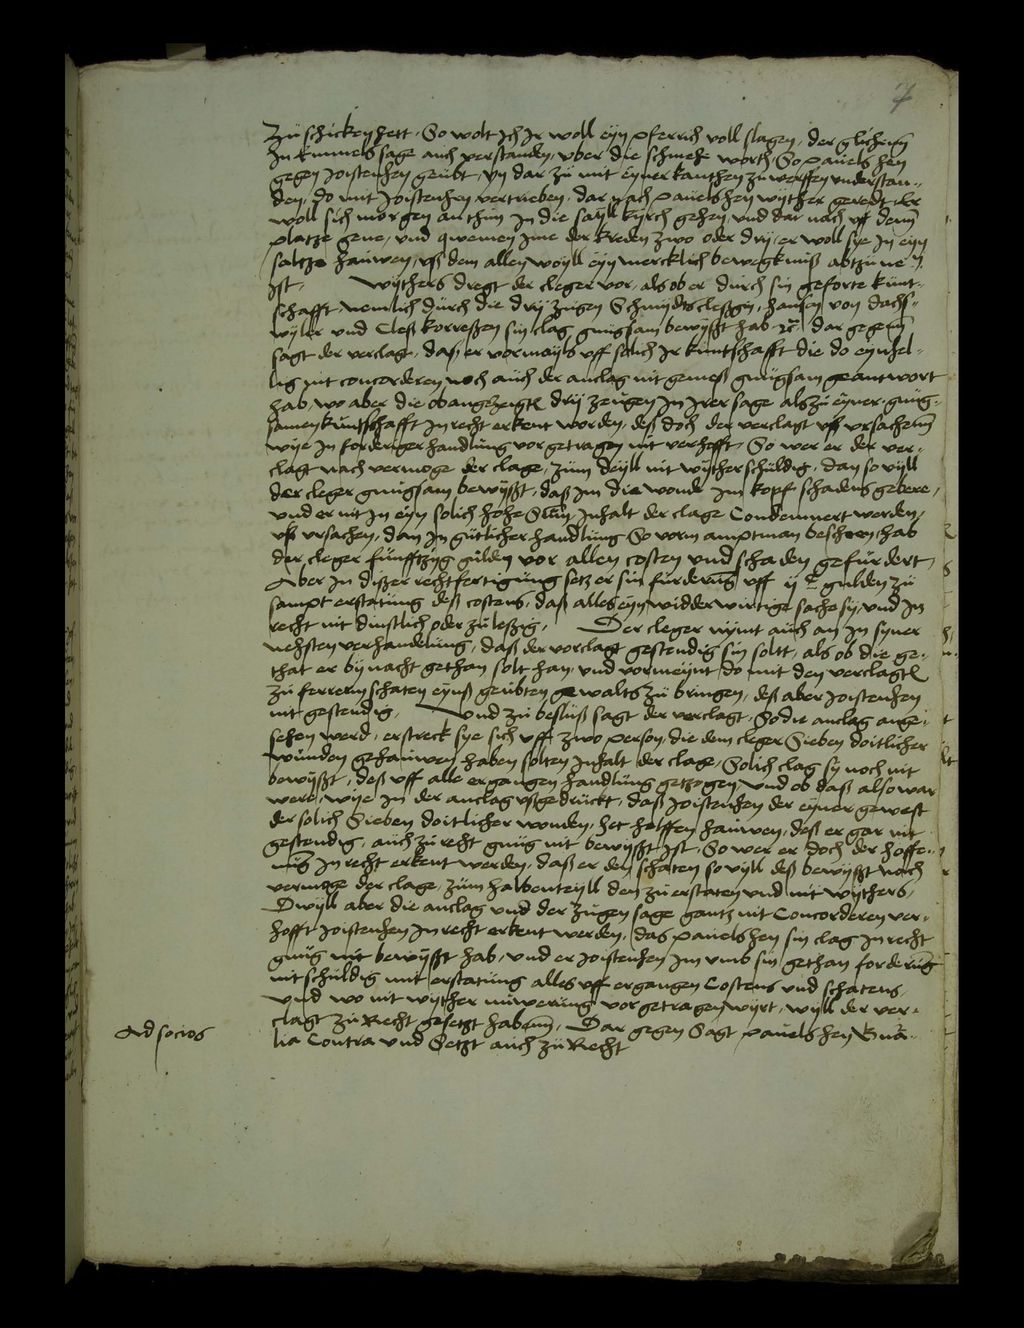 7
zu schicken hett, So wolt Ich Ir woll eyn pferrich voll slagen, der glichen
In kummels sage auch verstanden, vber die schmehe wort So pauels hen
gegen Joistenhen geubt, yn dar zu mit eyner kanthen zu werffen vnderstan,,
den, do mit Joistenhen vertrieben, dar nach pauelshen wyther geredt er
woll sich morgen an thun In die kyrch gehen, vnd dar nach vff dem
platze gene, vnd qwemen Ime der kreden zwo oder dry, er woll sye In eyn
saltze hauwen, vß dem allen woyll eyn mercklich bewegkniß abtzune,,
Ist, Wythers dregt der cleger vor, als ob er durch sin geforte kunt,,
schafft, nemlich durch die dry zugen Schmydts cleßgin, hansen von dachß,,
wyler vnd Cleß korreßen sin clag gnugsam bewyßt hab ꝛc dar gegenn
sagt der verclagt, daß er vormayls vff solich Ir kuntschafft die do eynhel,,
lig nit concorderen noch auch der anclag nit gemeß gnugsam geantwort
hab, wo aber die obangezeigte dry zeugen In Irer sage als zu eyner gnug,,
samen kuntschafft In recht erkent worden, deß doch der verclagt vß vrsachenn
wye In forderiger handlung vorgetragen nit verhofft, So wer er der ver,,
clagt nach vermoge der clage, zum deyll nit wyther schuldig, dan so vyll
der cleger gnugsam bewyßt, daß Im die wonde Im kopf schadens gebere,
vnd er nit In eyn solich hohe Sum Inhalt der clage Condemnert werden,
vß vrsachen, dan In gutlicher handlung So vorm amptman bescheen, hab
der cleger funfftzyg gulden vor allen costen vnd schaden gefurdert,
Aber In dißer rechtfertigung setz er sin furderung vff ij C gulden zu
sampt erstatung deß costens, daß alles eyn widderwirtige sache sy, vnd In
recht nit dinstlich oder zuleßig, Der cleger nympt auch an In syner
nehsten verhandelung, daß der verclagt gestendig sin soltt, als ob die ge,,
that er by nacht gethan solt han, vnd vormeynt do mit den verclagten
zu ferrerm schaten eynß geubten gewalts zu bringen, deß aber Joistenhen
nit gestendig, Vnd zu besluß sagt der verclagt, So die anclag ange,,
sehen werd, erstreck sye sich vff zwo person, die dem cleger Sieben doitlicher
wunden gehauwen haben solten Inhalt der clage, Solich clag sy noch nit
bewyßt, deß vff alle ergangen handlung getzogen, vnd ob daß also war
were, wye In der anclag vßgedruckt, daß Joistenhen der eyner gewest
der solich Sieben doitlicher wunden, het helffen hauwen, deß er gar nit
gestendig, auch zu recht gnug nit bewyßt Ist, So wer er doch der hoffe,,
nung In recht erkent werden, daß er den schaten so vyll deß bewyßt nach
vermoge der clage, zum halbenteyll den zu erstaten vnd nit wythers,
Dwyll aber die anclag vnd der zugen sage gantz nit Concorderen ver,,
hofft Joistenhen In recht erkent werden, das pauelshen sin clag In recht
gnug nit bewyßt hab, vnd er Joistenhen Im vmb sin gethan forderung
nit schuldig mit erstatung alles vff ergangen Costens vnd schatens,
vnd wo nit wyther nuwerung vorgetragen wyrt, wyll der ver,,
clagt zu Recht gesetzt habenn, Dar gegen Sagt pauelshen Gna,,
lia Contra vnd Setzt auch zu Recht
Ad socios